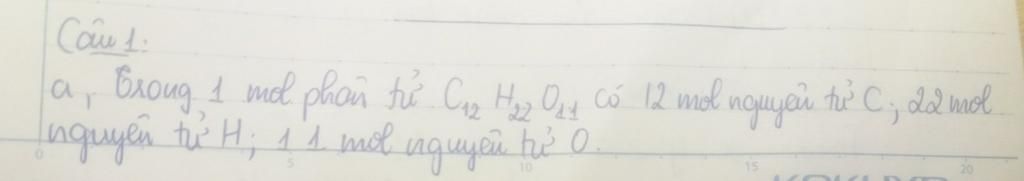 Câu 1:
a, Trong 1 mol phân tử C₁₂ H₂₂ O₁₁ có 12 mol nguyên tử C; 22 mol
nguyên tử H; 11 mol nguyên tử O.
0 5 10 15 20